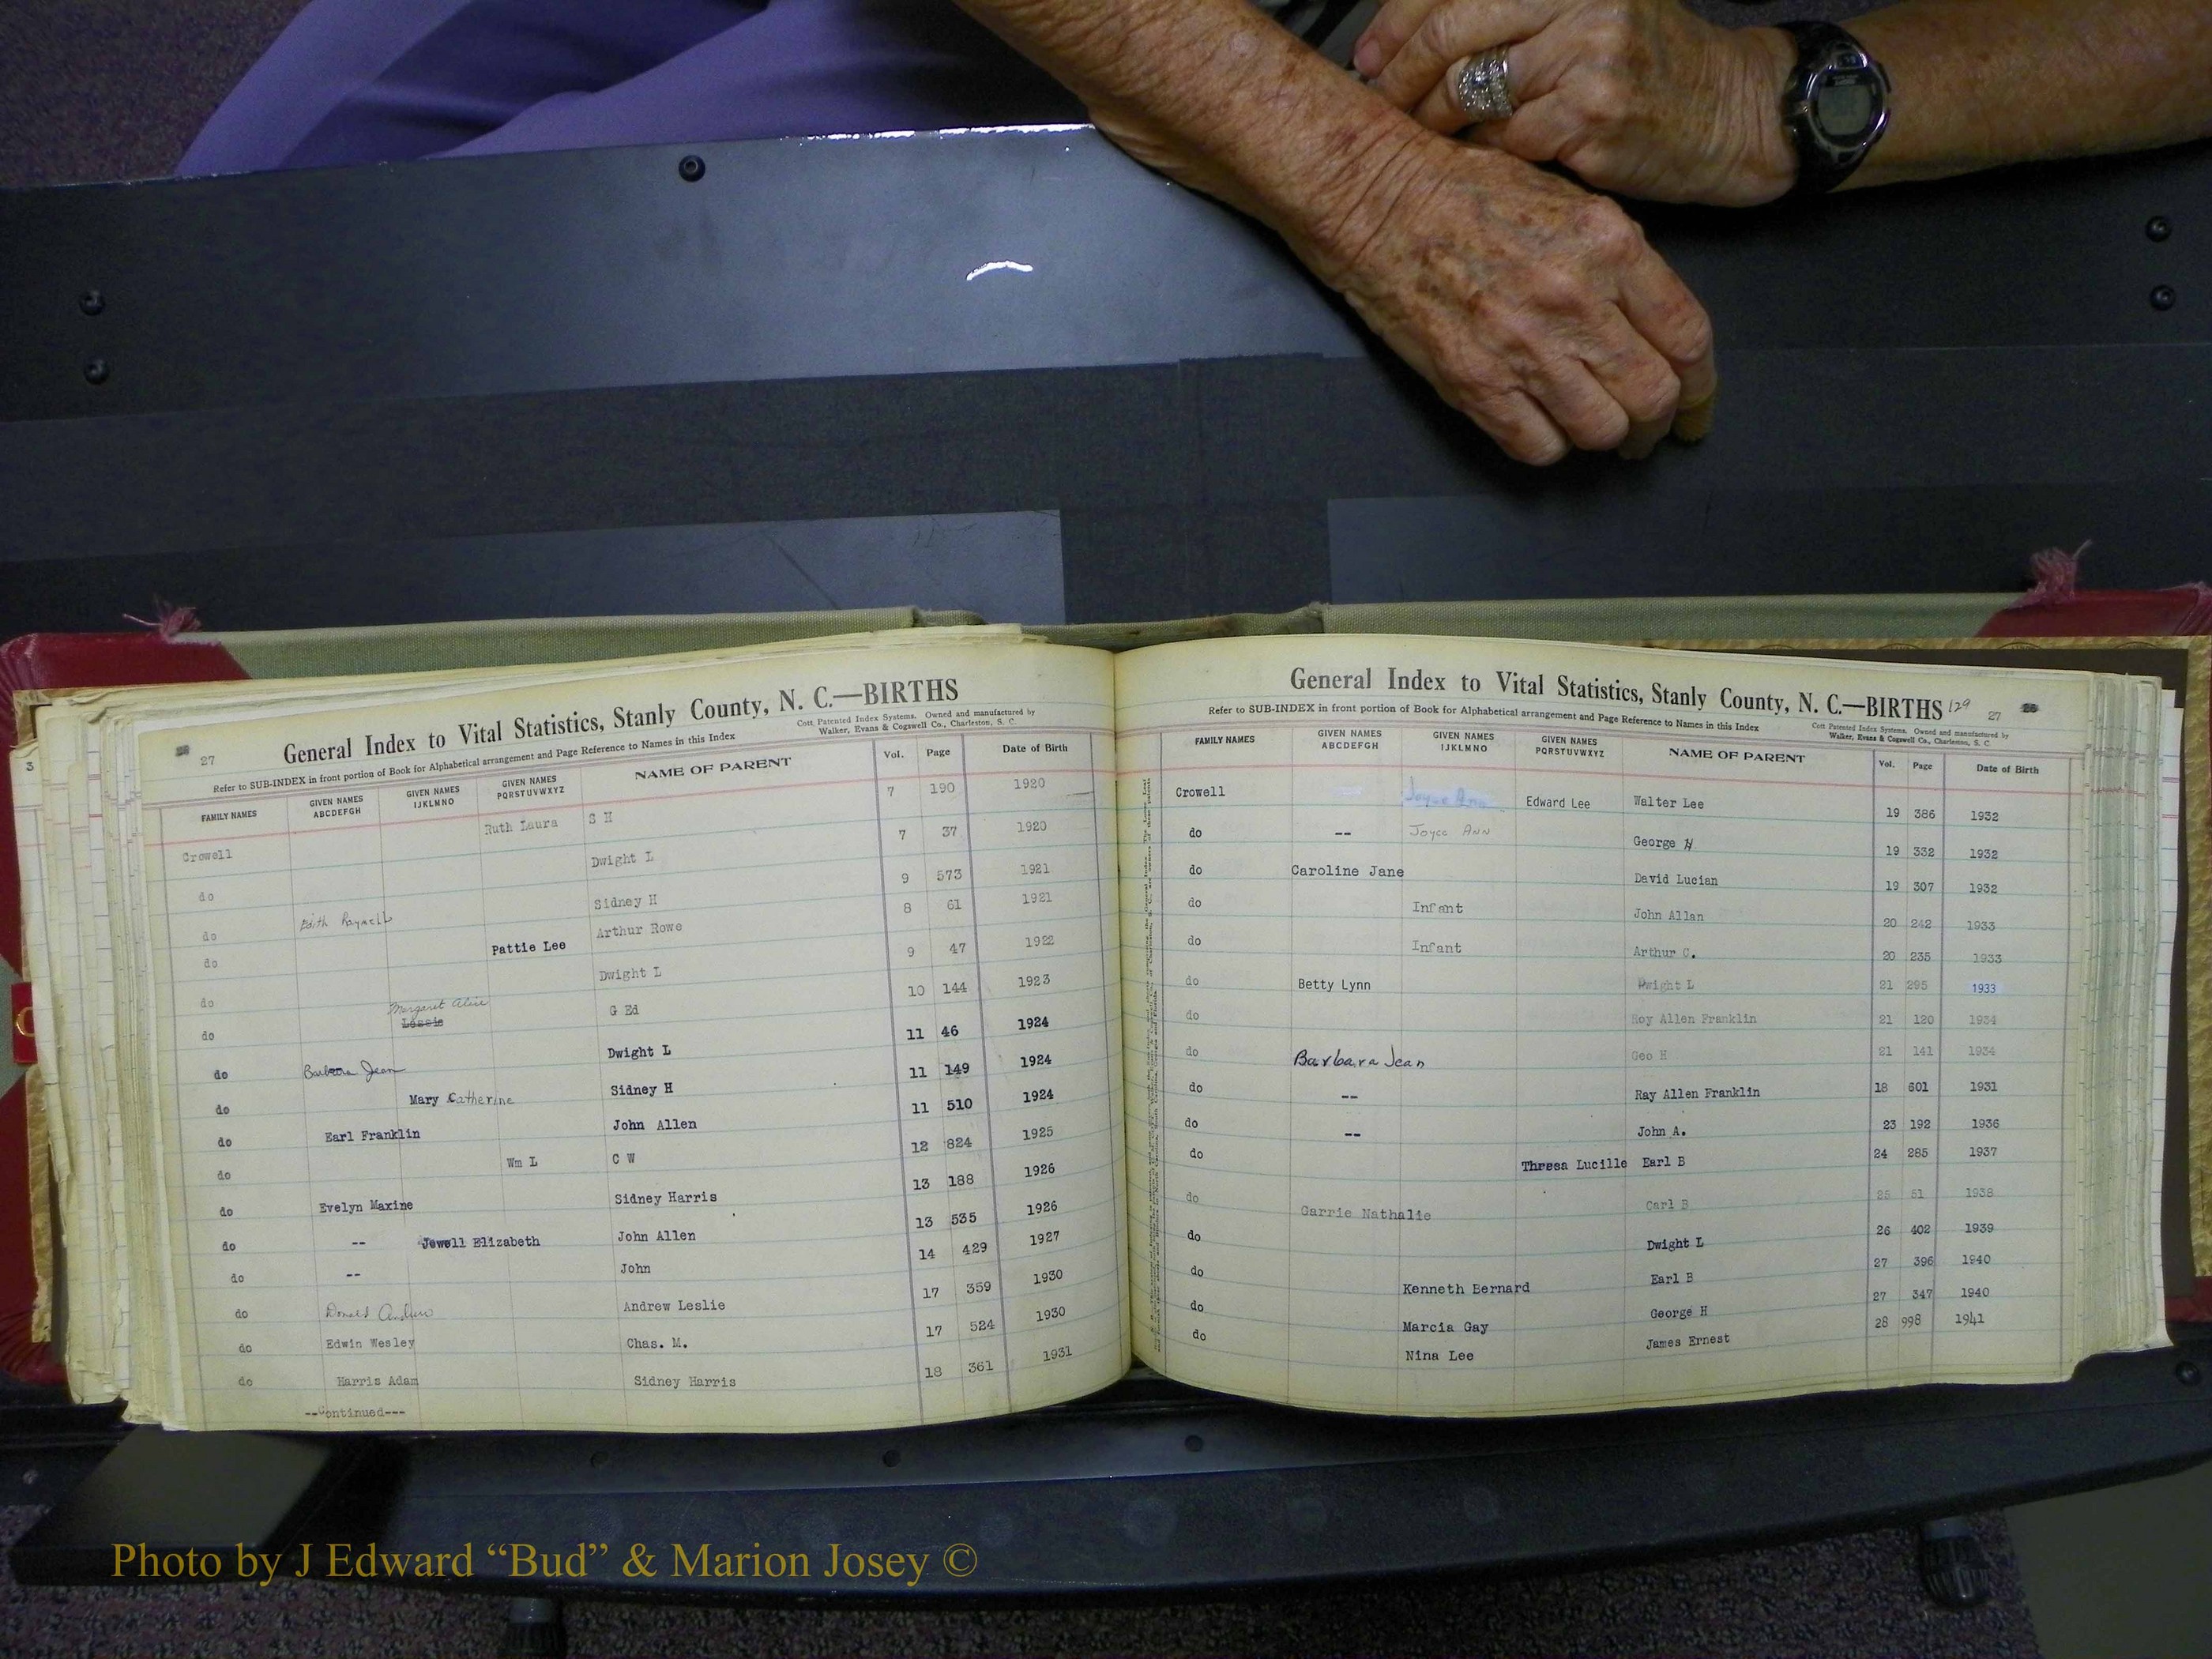 27
General Index to Vital Statistics, Stanly County, N. C.—BIRTHS
Refer to SUB-INDEX in front portion of Book for Alphabetical arrangement and Page Reference to Names in this Index
Cott Patented Index Systems. Owned and manufactured by
Walker, Evans & Cogswell Co., Charleston, S. C.
FAMILY NAMES GIVEN NAMES ABCDEFGH GIVEN NAMES IJKLMNO GIVEN NAMES PQRSTUVWXYZ NAME OF PARENT Vol. Page Date of Birth
Crowell Ruth Laura S H 7 190 1920
do Dwight L 7 37 1920
do Edith Sidney H 9 573 1921
do Pattie Lee Arthur Rowe 8 61 1921
do Dwight L 9 47 1922
do Margaret Alice Lessie G Ed 10 144 1923
do Barbara Jean Dwight L 11 46 1924
do Mary Catherine Sidney H 11 149 1924
do Earl Franklin John Allen 11 510 1924
do Wm L C W 12 824 1925
do Evelyn Maxine Sidney Harris 13 188 1926
do -- Jewell Elizabeth John Allen 13 535 1926
do -- John 14 429 1927
do Donald Andrew Andrew Leslie 17 359 1930
do Edwin Wesley Chas. M. 17 524 1930
do Harris Adam Sidney Harris 18 361 1931
--Continued---
General Index to Vital Statistics, Stanly County, N. C.—BIRTHS 129 27
Refer to SUB-INDEX in front portion of Book for Alphabetical arrangement and Page Reference to Names in this Index
Cott Patented Index Systems. Owned and manufactured by
Walker, Evans & Cogswell Co., Charleston, S. C.
FAMILY NAMES GIVEN NAMES ABCDEFGH GIVEN NAMES IJKLMNO GIVEN NAMES PQRSTUVWXYZ NAME OF PARENT Vol. Page Date of Birth
Crowell Joyce Ann Edward Lee Walter Lee 19 386 1932
do -- Joyce Ann George H 19 332 1932
do Caroline Jane David Lucian 19 307 1932
do Infant John Allan 20 242 1933
do Infant Arthur C. 20 235 1933
do Betty Lynn Dwight L 21 295 1933
do Roy Allen Franklin 21 120 1934
do Barbara Jean Geo H 21 141 1934
do -- Ray Allen Franklin 18 601 1931
do -- John A. 23 192 1936
do Thresa Lucille Earl B 24 285 1937
do Carrie Nathalie Carl B 25 51 1938
do Dwight L 26 402 1939
do Kenneth Bernard Earl B 27 396 1940
do Marcia Gay George H 27 347 1940
do Nina Lee James Ernest 28 998 1941
Photo by J Edward “Bud” & Marion Josey ©